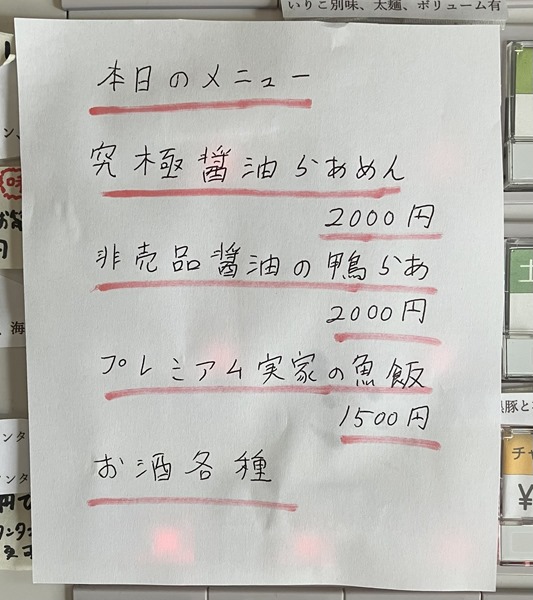 いりこ別味、太麺、ボリューム有
本日のメニュー
究極醤油らあめん
2000円
非売品醤油の鴨らあ
2000円
プレミアム実家の魚飯
1500円
お酒各種
豚と
チャ
¥